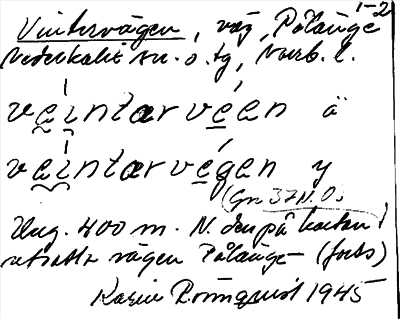 1-2
Vintervägen, väg, Pålänge
Nederkalix sn. o. tg, Norrb. l.
vei̯ntarvéen ä
vei̯ntarvégen y
(Gr 37 N.O.)
Ung. 400 m. N. den på kartan
utsatta vägen Pålänge - (forts)
Karin Rönnquist 1945